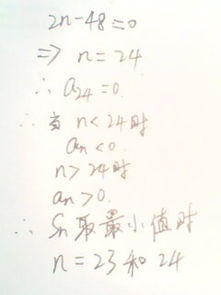 2n-48=0
⇒ n=24
∴ a₂₄=0.
∴ 当 n<24时
aₙ<0.
n>24时
aₙ>0.
∴ Sₙ取最小值时
n=23和24